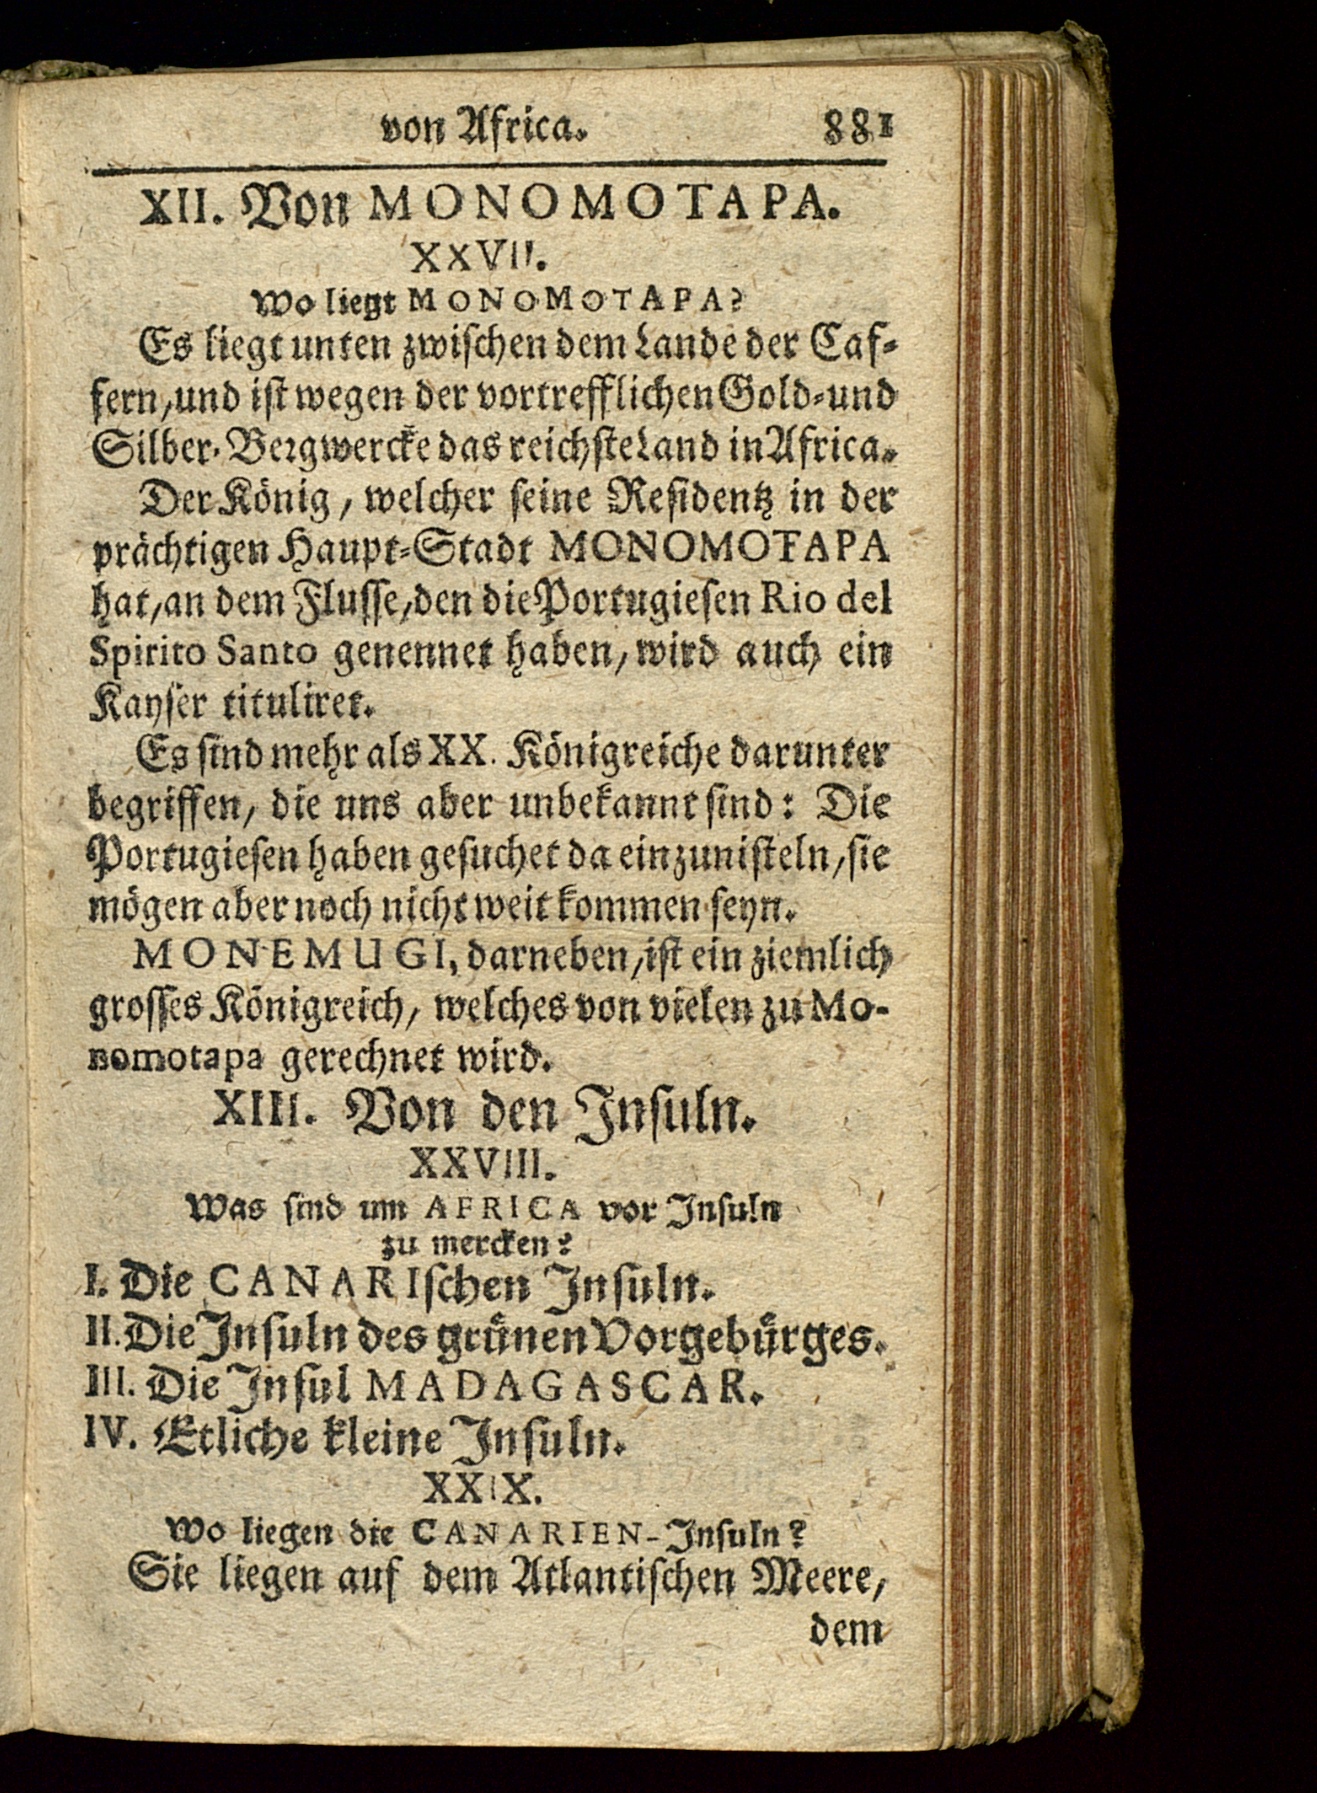 von Africa. 881
XII. Von MONOMOTAPA.
XXVII.
Wo liegt MONOMOTAPA?
Es liegt unten zwischen dem Lande der Caf-
fern, und ist wegen der vortrefflichen Gold- und
Silber-Bergwercke das reichste Land in Africa.
Der König, welcher seine Residentz in der
prächtigen Haupt-Stadt MONOMOTAPA
hat, an dem Flusse, den die Portugiesen Rio del
Spirito Santo genennet haben, wird auch ein
Kayser tituliret.
Es sind mehr als XX. Königreiche darunter
begriffen, die uns aber unbekannt sind: Die
Portugiesen haben gesuchet da einzunisteln, sie
mögen aber noch nicht weit kommen seyn.
MONEMUGI, darneben, ist ein ziemlich
grosses Königreich, welches von vielen zu Mo-
nomotapa gerechnet wird.
XIII. Von den Insuln.
XXVIII.
Was sind um AFRICA vor Insuln
zu mercken?
I. Die CANARIschen Insuln.
II. Die Insuln des grünen Vorgebürges.
III. Die Insul MADAGASCAR.
IV. Etliche kleine Insuln.
XXIX.
Wo liegen die CANARIEN-Insuln?
Sie liegen auf dem Atlantischen Meere,
dem